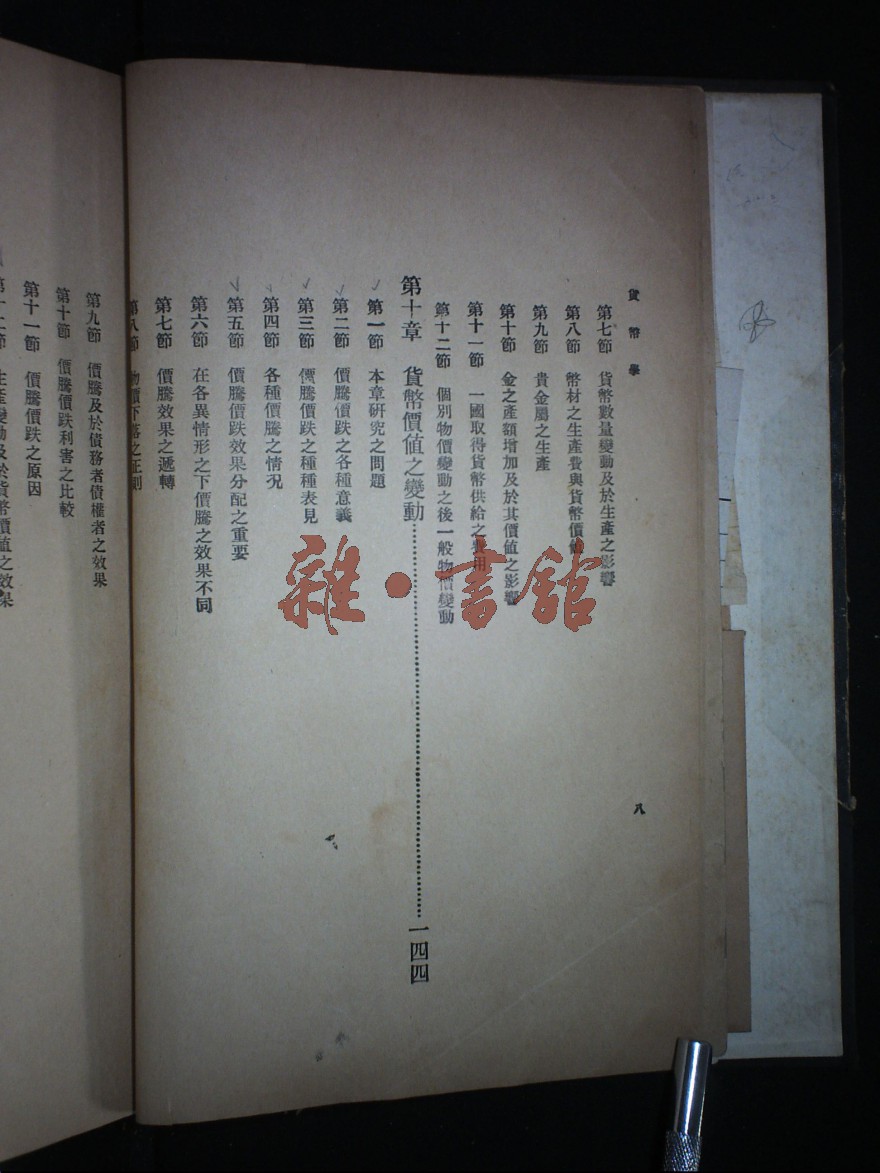 貨幣學
八
第七節 貨幣數量變動及於生產之影響
第八節 幣材之生產費與貨幣價値
第九節 貴金屬之生產
第十節 金之產額增加及於其價値之影響
第十一節 一國取得貨幣供給之費用
第十二節 個別物價變動之後一般物價變動
第十章 貨幣價値之變動……一四四
第一節 本章研究之問題
第二節 價騰價跌之各種意義
第三節 價騰價跌之種種表見
第四節 各種價騰之情况
第五節 價騰價跌效果分配之重要
第六節 在各異情形之下價騰之效果不同
第七節 價騰效果之遞轉
第八節 物價下落之正則
第九節 價騰及於債務者債權者之效果
第十節 價騰價跌利害之比較
第十一節 價騰價跌之原因
第十二節 生產變動及於貨幣價値之效果
雜·書館